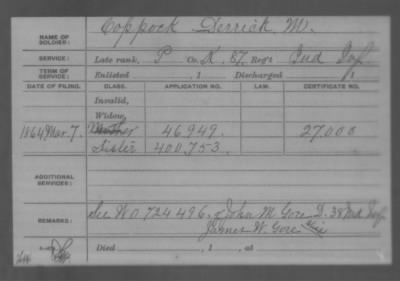 NAME OF SOLDIER: Coppock Derrick M.
SERVICE: Late rank, P Co. K, 87 Reg't Ind Inf
TERM OF SERVICE: Enlisted , 1 Discharged , 1
DATE OF FILING. CLASS. APPLICATION NO. LAW. CERTIFICATE NO.
Invalid,
Widow,
1864, Mar. 7. Mother 46949. 27,000
Sister 400,753.
ADDITIONAL SERVICES:
REMARKS: See W.O. 724496, John M. Gore D. 38 Ind Inf
James W. Gore
Died , 1 , at